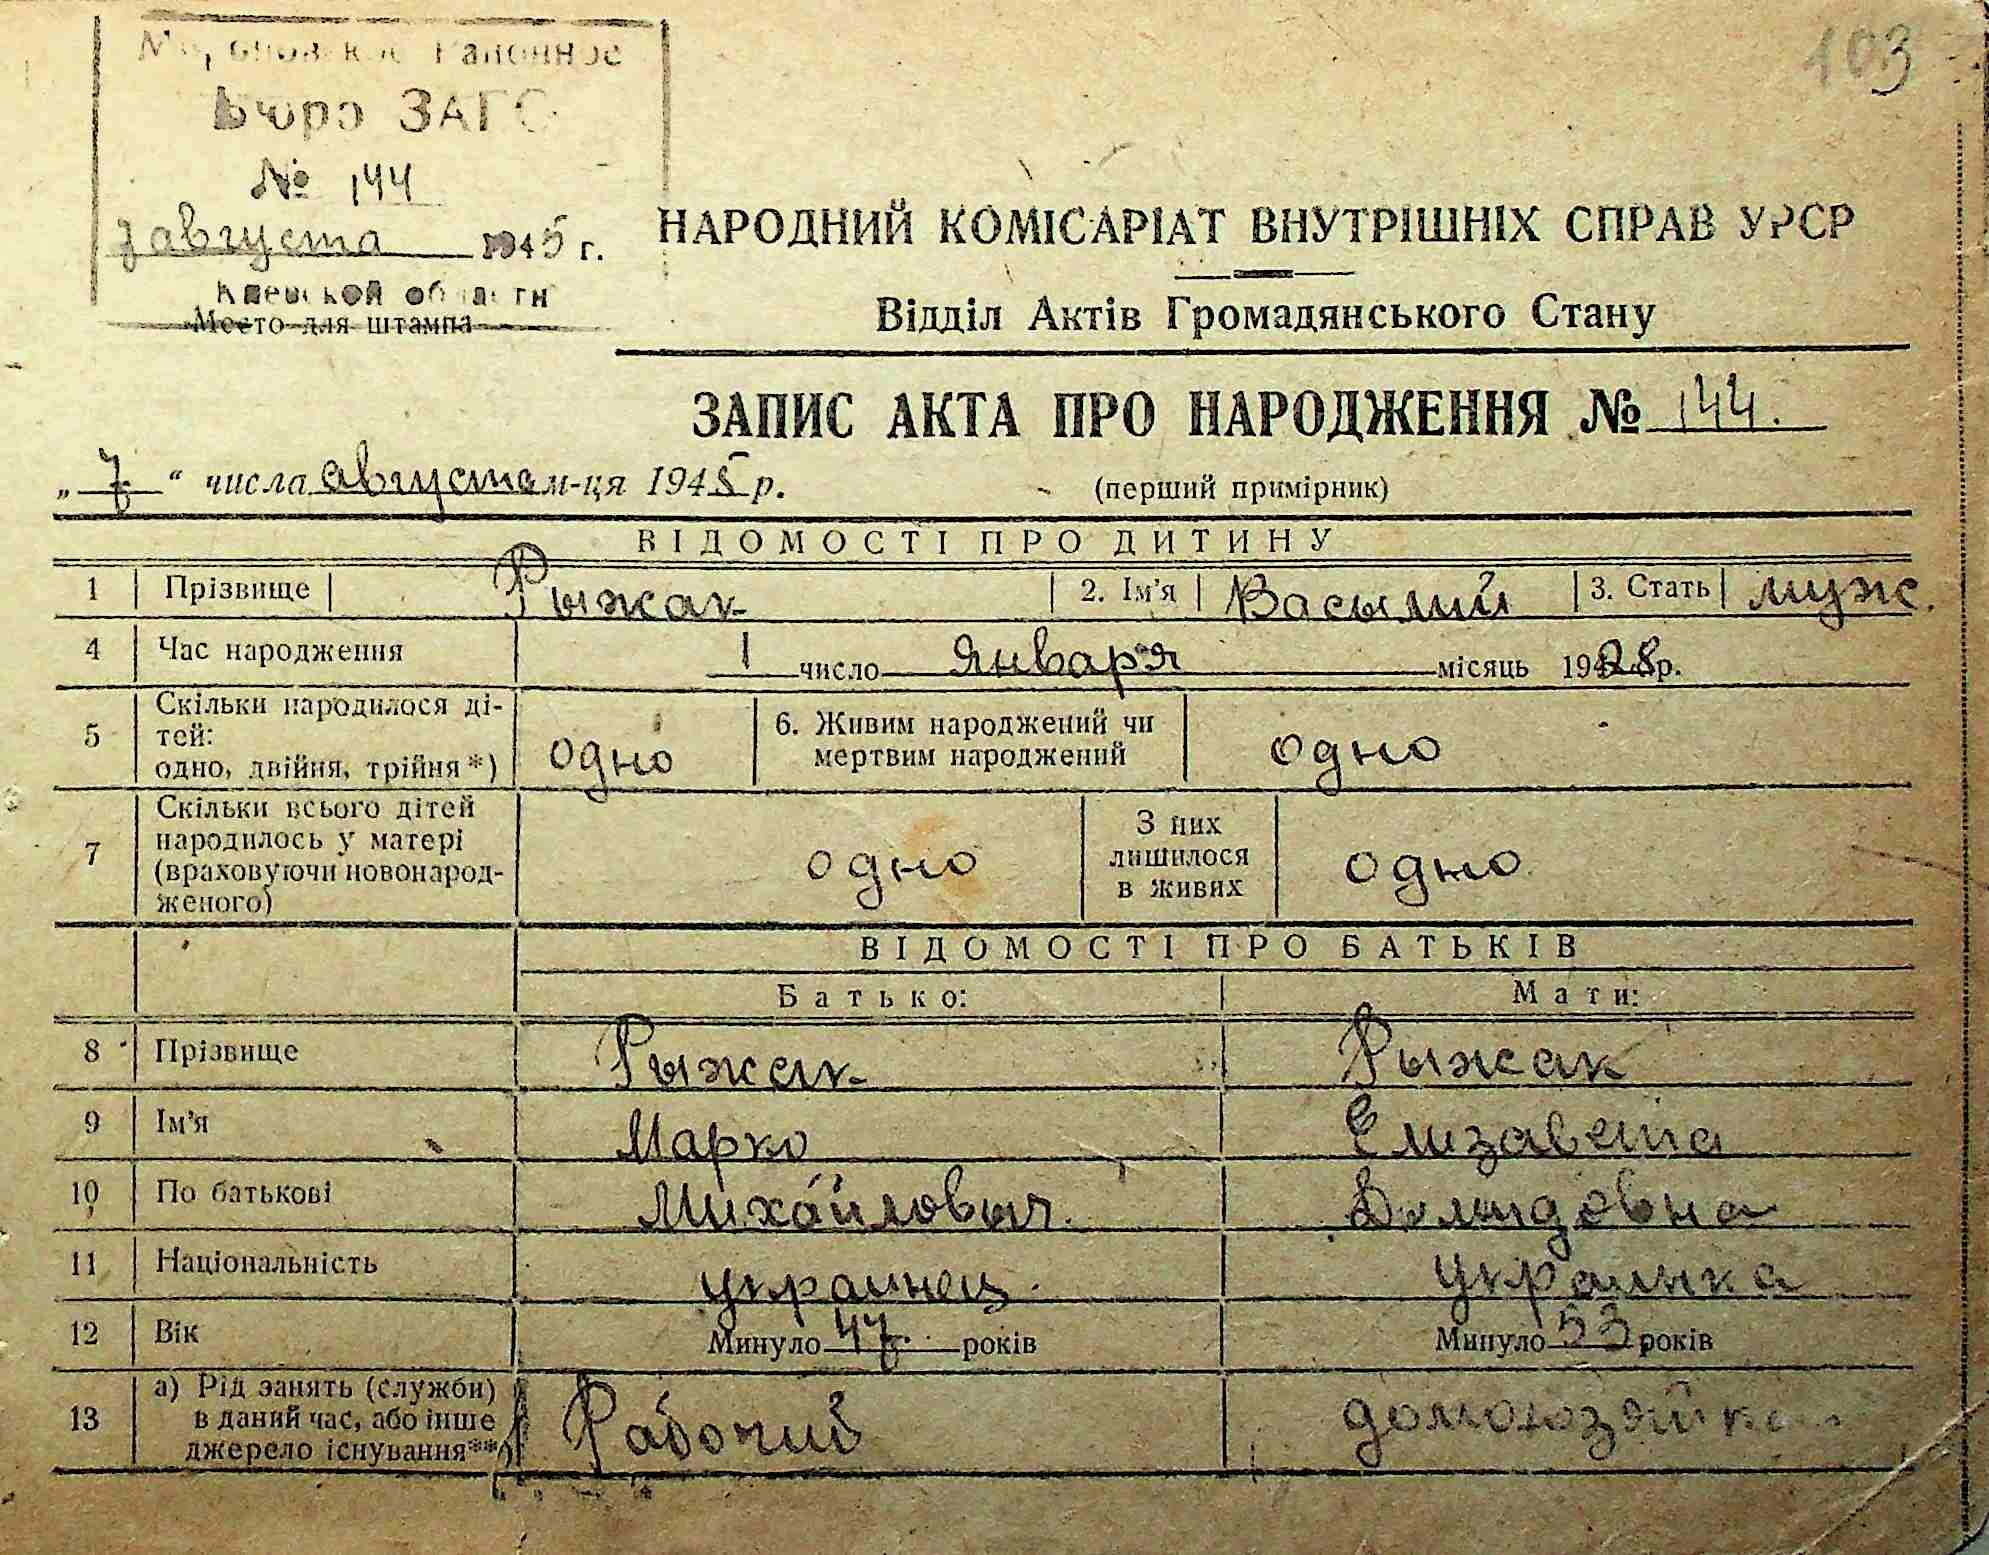 103
Мироновское Районное
Бюро ЗАГС
№ 144
7 августа 1945 г.
Киевской области
Место для штампа
НАРОДНИЙ КОМІСАРІАТ ВНУТРІШНІХ СПРАВ УРСР
Відділ Актів Громадянського Стану
ЗАПИС АКТА ПРО НАРОДЖЕННЯ № 144.
„ 7 “ числа августа м-ця 1945 р. (перший примірник)
ВІДОМОСТІ ПРО ДИТИНУ
1 Прізвище Рыжак 2. Ім'я Васылий 3. Стать муж.
4 Час народження 1 число января місяць 1928 р.
5 Скільки народилося ді-
тей:
одно, двійня, трійня*) одно 6. Живим народжений чи
мертвим народжений одно
7 Скільки всього дітей
народилось у матері
(враховуючи новонарод-
женого) одно З них
лишилося
в живих одно
ВІДОМОСТІ ПРО БАТЬКІВ
Батько: Мати:
8 Прізвище Рыжак Рыжак
9 Ім'я Марко Елизавета
10 По батькові Михайловыч
11 Національність украинец украинка
12 Вік Минуло 47 років Минуло 53 років
13 а) Рід занять (служби)
в даний час, або інше
джерело існування**) Рабочий домохозяйка